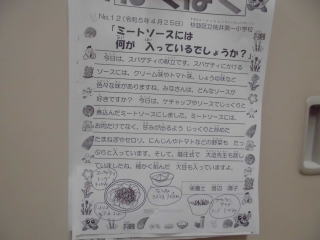 No.12(令和5年4月25日)
杉並区立桃井第一小学校
「ミートソースには
何が 入っているでしょうか?」
今日は、スパゲティの献立です。スパゲティにかける
ソースには、クリーム味やトマト味、しょうゆ味など
色々な味がありますね。みなさんは、どんなソースが
好きですか? 今日は、ケチャップやソースでじっくりと
煮込んだミートソースにしました。ミートソースには、
お肉だけでなく、甘みが出るよう じっくりと炒めた
たまねぎやセロリ、にんじんやトマトなどの野菜も たっ
ぷりと入っています。そして、
ていましたね。細かく刻んだ 大豆も入っていますよ。
栄養士 渡辺